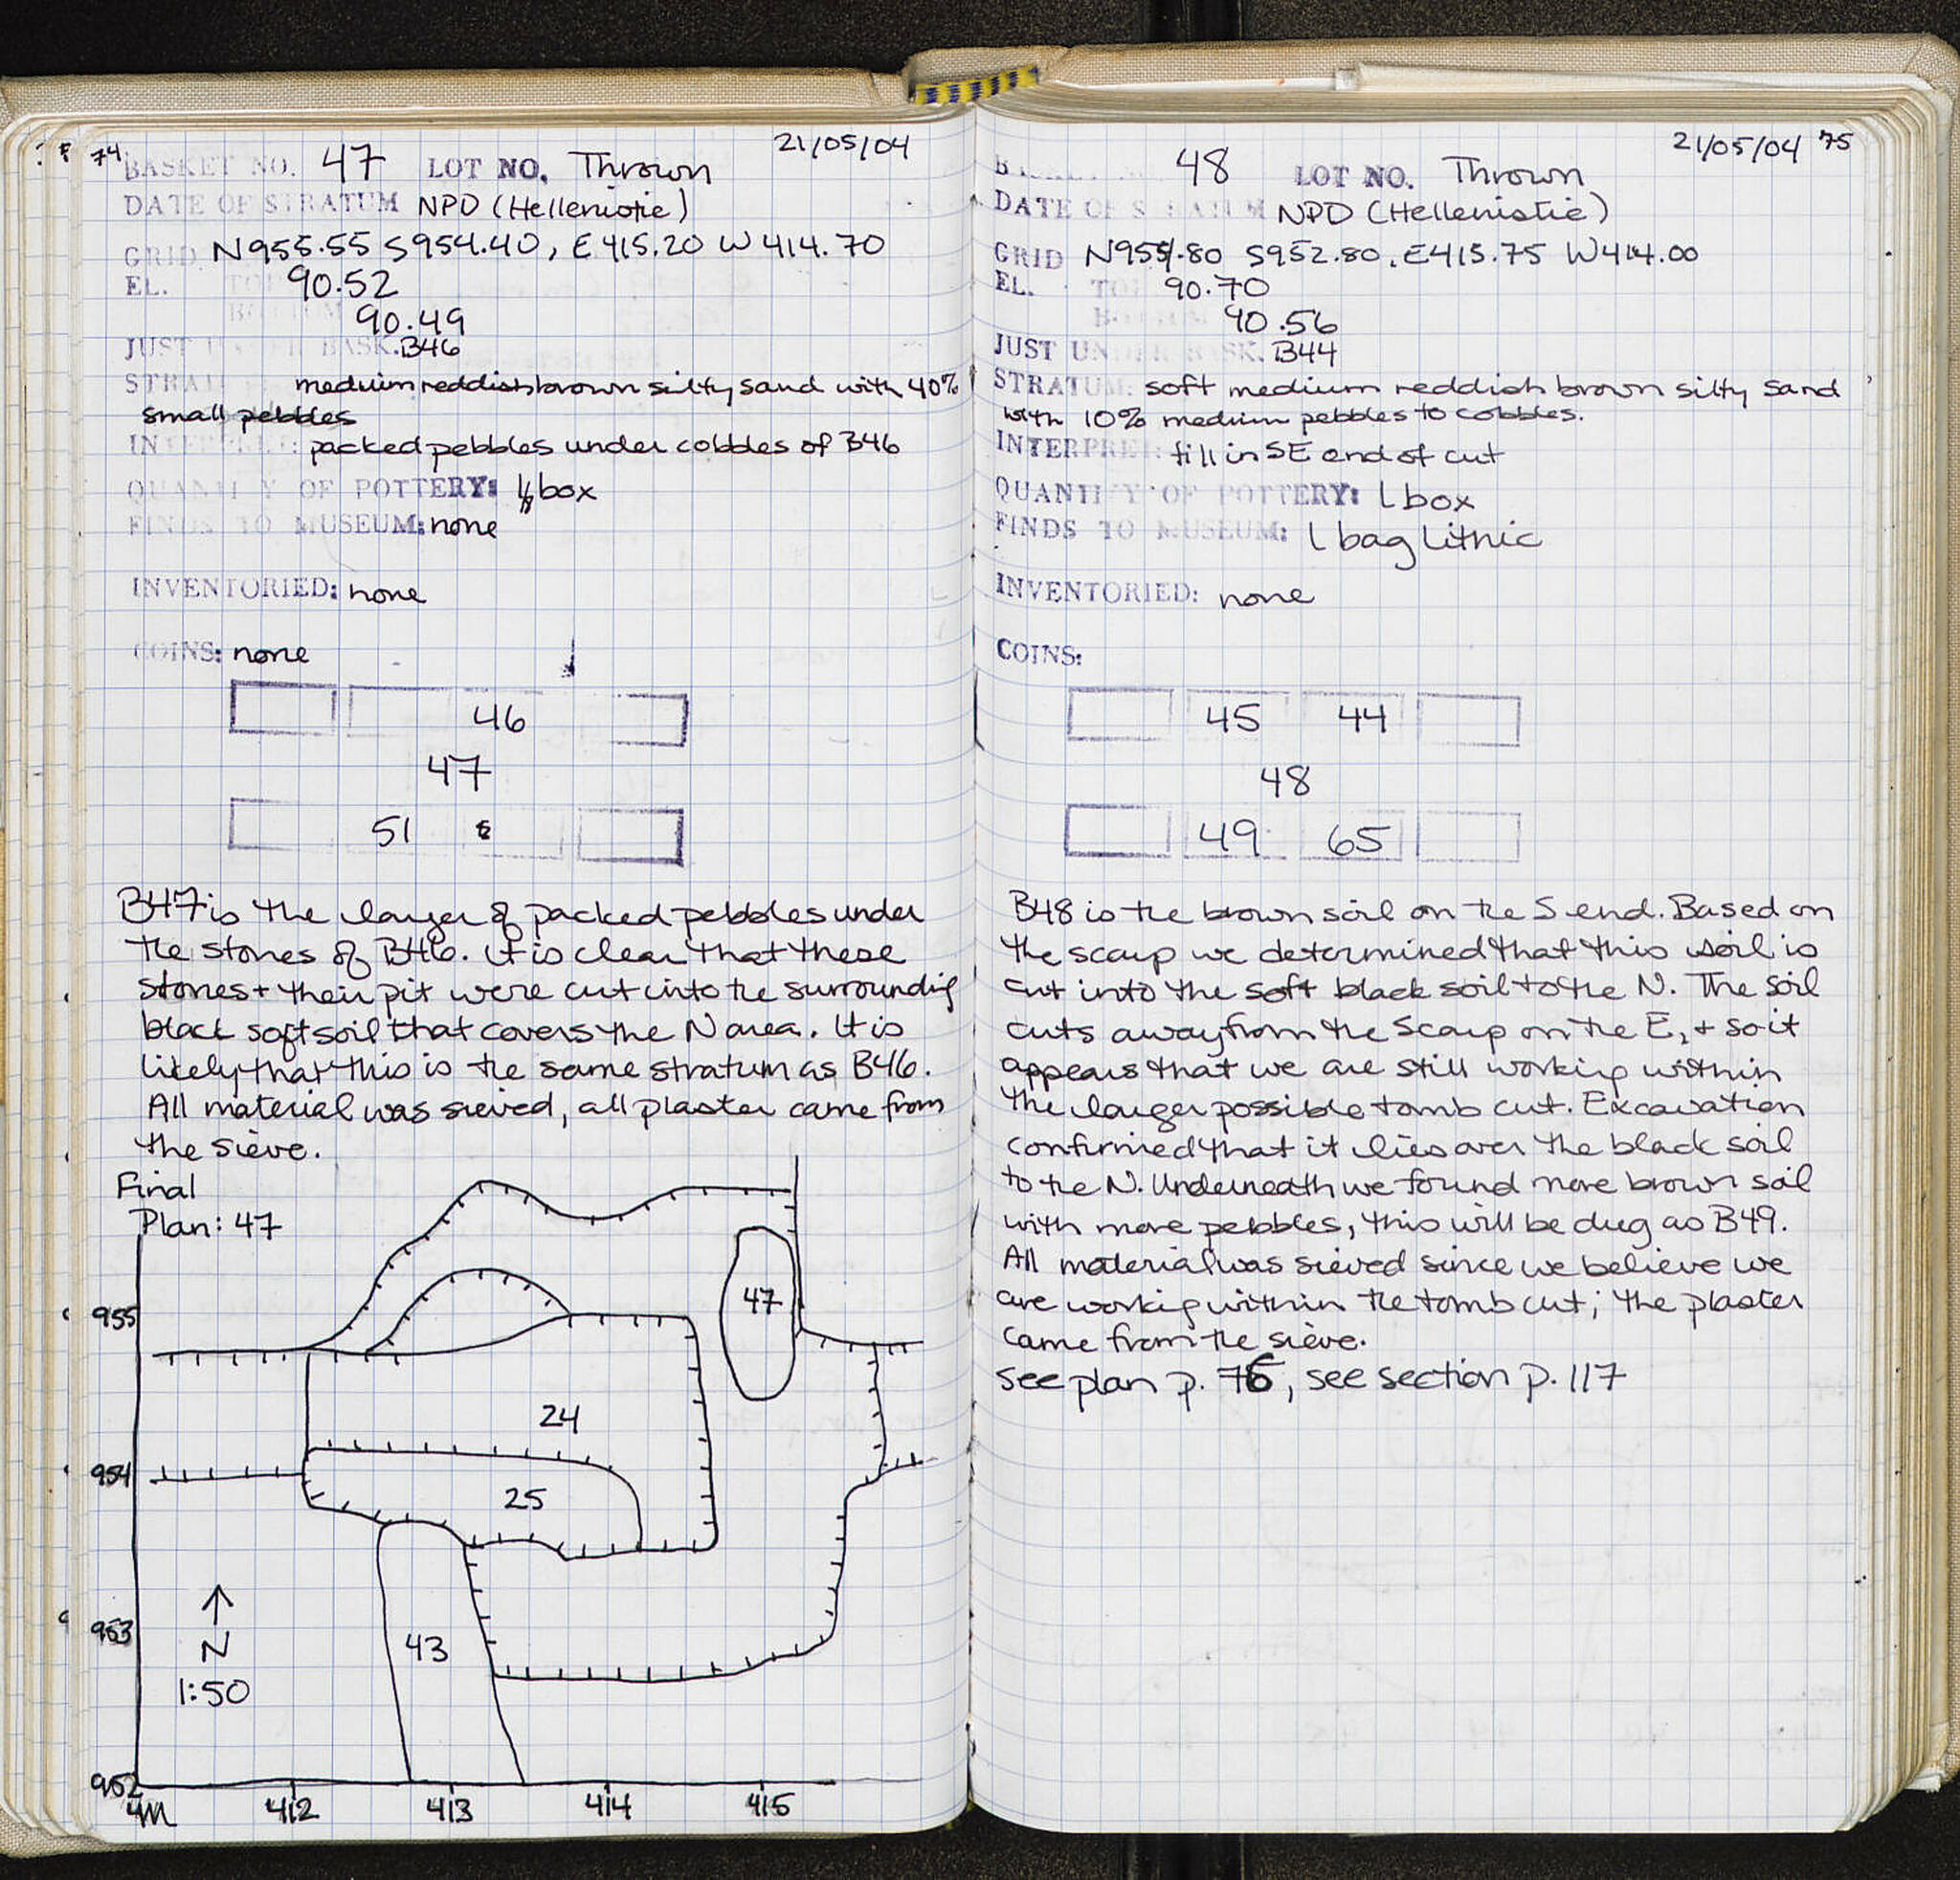 74
21/05/04
BASKET NO. 47 LOT NO. Thrown
DATE OF STRATUM NPD (Hellenistic)
GRID N955.55 S954.40, E415.20 W414.70
EL. TOP 90.52
BOTTOM 90.49
JUST UNDER BASK. B46
STRATUM: medium reddish brown silty sand with 40%
small pebbles
INTERPRET: packed pebbles under cobbles of B46
QUANTITY OF POTTERY: box
FINDS TO MUSEUM: none
INVENTORIED: none
COINS: none
46
47
51
B47 is the layer of packed pebbles under
the stones of B46. It is clear that these
stones + their pit were cut into the surrounding
black soft soil that covers the N area. It is
likely that this is the same stratum as B46.
All material was sieved, all plaster came from
the sieve.
Final
Plan: 47
47
955
24
954
25
N
953
43
1:50
952
411 412 413 414 415
21/05/04 75
BASKET NO. 48 LOT NO. Thrown
DATE OF STRATUM NPD (Hellenistic)
GRID N954.80 S952.80, E415.75 W414.00
EL. TOP 90.70
BOTTOM 90.56
JUST UNDER BASK. B44
STRATUM: soft medium reddish brown silty sand
with 10% medium pebbles to cobbles.
INTERPRET: fill in SE end of cut
QUANTITY OF POTTERY: 1 box
FINDS TO MUSEUM: 1 bag Lithic
INVENTORIED: none
COINS:
45 44
48
49 65
B48 is the brown soil on the S end. Based on
the scarp we determined that this soil is
cut into the soft black soil to the N. The soil
cuts away from the Scarp on the E, + so it
appears that we are still working within
the larger possible tomb cut. Excavation
confirmed that it lies over the black soil
to the N. Underneath we found more brown soil
with more pebbles, this will be dug as B49.
All material was sieved since we believe we
are working within the tomb cut; the plaster
came from the sieve.
see plan p. 76, see section p. 117